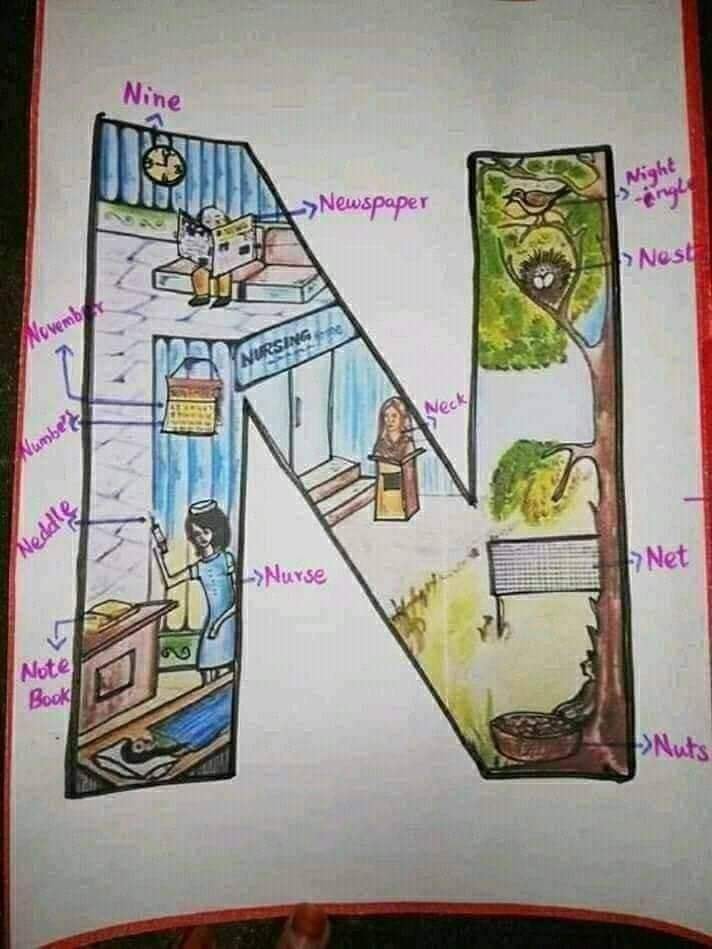 Nine
Newspaper
Night
-ingle
Nest
November
NURSING Home
Neck
Number
Neddle
Nurse
Net
Note
Book
Nuts